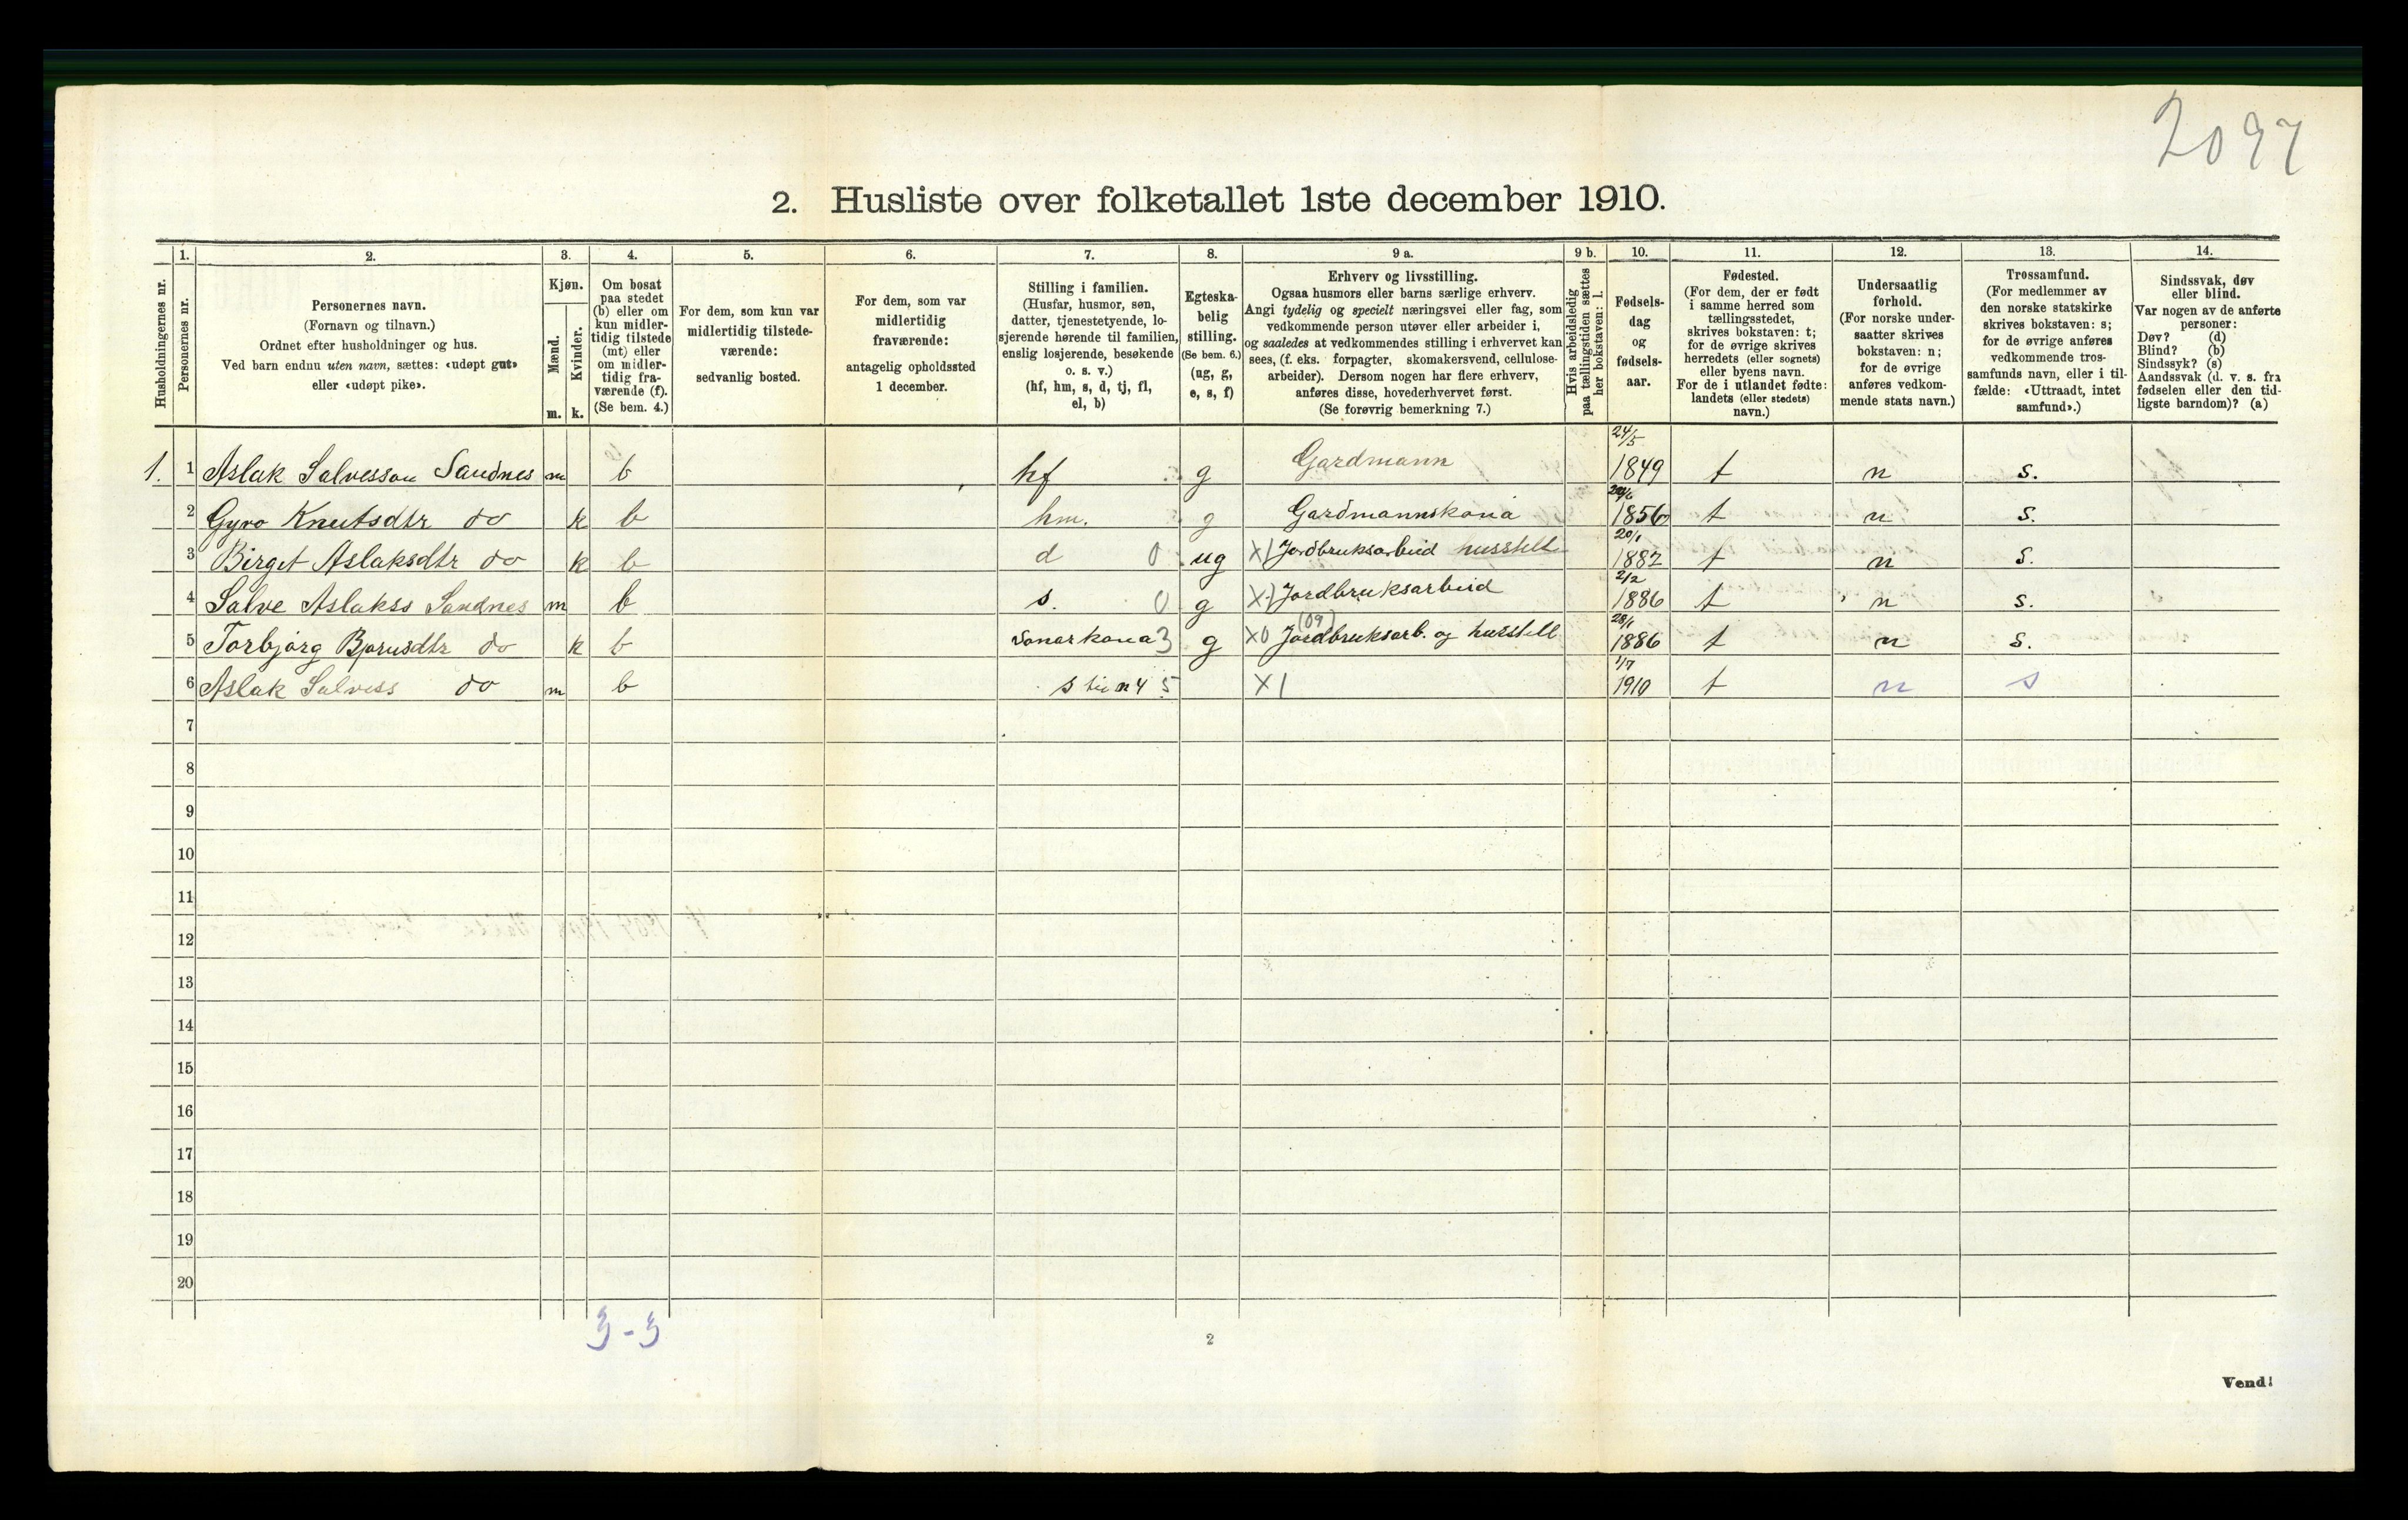 2097
2. Husliste over folketallet 1ste december 1910.
Husholdningernes nr.
1.
Personernes nr.
2.
Personernes navn.
(Fornavn og tilnavn.)
Ordnet efter husholdninger og hus.
Ved barn endnu uten navn, sættes: «udøpt gut»
eller «udøpt pike».
3.
Kjøn.
Mænd.
m.
Kvinder.
k.
4.
Om bosat
paa stedet
(b) eller om
kun midler-
tidig tilstede
(mt) eller
om midler-
tidig fra-
værende (f).
(Se bem. 4.)
5.
For dem, som kun var
midlertidig tilstede-
værende:
sedvanlig bosted.
6.
For dem, som var
midlertidig
fraværende:
antagelig opholdssted
1 december.
7.
Stilling i familien.
(Husfar, husmor, søn,
datter, tjenestetyende, lo-
sjerende hørende til familien,
enslig losjerende, besøkende
o. s. v.)
(hf, hm, s, d, tj, fl,
el, b)
8.
Egteska-
belig
stilling.
(Se bem. 6.)
(ug, g,
e, s, f)
9 a.
Erhverv og livsstilling.
Ogsaa husmors eller barns særlige erhverv.
Angi tydelig og specielt næringsvei eller fag, som
vedkommende person utøver eller arbeider i,
og saaledes at vedkommendes stilling i erhvervet kan
sees, (f. eks. forpagter, skomakersvend, cellulose-
arbeider). Dersom nogen har flere erhverv,
anføres disse, hovederhvervet først.
(Se forøvrig bemerkning 7.)
9 b.
Hvis arbeidsledig
paa tællingstiden sættes
her bokstaven: l.
10.
Fødsels-
dag
og
fødsels-
aar.
11.
Fødested.
(For dem, der er født
i samme herred som
tællingsstedet,
skrives bokstaven: t;
for de øvrige skrives
herredets (eller sognets)
eller byens navn.
For de i utlandet fødte:
landets (eller stedets)
navn.)
12.
Undersaatlig
forhold.
(For norske under-
saatter skrives
bokstaven: n;
for de øvrige
anføres vedkom-
mende stats navn.)
13.
Trossamfund.
(For medlemmer av
den norske statskirke
skrives bokstaven: s;
for de øvrige anføres
vedkommende tros-
samfunds navn, eller i til-
fælde: «Uttraadt, intet
samfund».)
14.
Sindssvak, døv
eller blind.
Var nogen av de anførte
personer:
Døv? (d)
Blind? (b)
Sindssyk? (s)
Aandssvak (d. v. s. fra
fødselen eller den tid-
ligste barndom)? (a)
1. 1 Aslak Salvesson Sandnes m b hf g Gardmann 24/5 1849 t n s.
2 Gyro Knutsdtr do k b hm. g Gardmannskona 1856 t n s.
3 Birget Aslaksdtr do k b d 0 ug X1 Jordbruksarbeid husstell 20/1 1882 t n s.
4 Salve Aslakss Sandnes m b s. 0 g X1 Jordbruksarbeid 2/2 1886 t n s.
5 Torbjørg Bjørnsdtr do k b sonarkona 3 g X0 (09) Jordbruksarb. og husstell 28/1 1886 t n s.
6 Aslak Salvess do m b s til n 4 5 X1 1/7 1910 t n s
7
8
9
10
11
12
13
14
15
16
17
18
19
20
3-3
2
Vend!